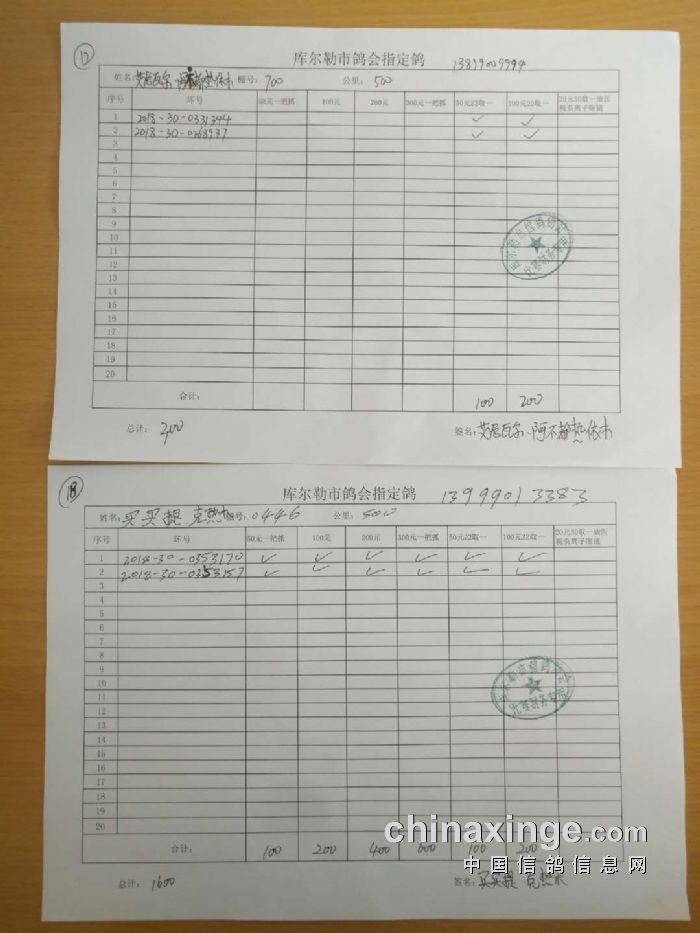 17
库尔勒市鸽会指定鸽 13899009994
姓名: 棚号: 700 公里: 500
序号 环号 50元一把抓 100元 200元 300元一把抓 50元22取一 100元22取一 20元30取一
1 2018-30-0331344 ✓ ✓
2 2018-30-0368937 ✓ ✓
3
4
5
6
7
8
9
10
11
12
13
14
15
16
17
18
19
20
合计: 100 200
总计: 300 签名:
18
库尔勒市鸽会指定鸽 13999013383
姓名: 买买提 克热木 棚号: 0446 公里: 500
序号 环号 50元一把抓 100元 200元 300元一把抓 50元22取一 100元22取一 20元30取一
1 2018-30-0353170 ✓ ✓ ✓ ✓ ✓ ✓
2 2018-30-0353157 ✓ ✓ ✓ ✓ ✓ ✓
3
4
5
6
7
8
9
10
11
12
13
14
15
16
17
18
19
20
合计: 100 200 400 600 100 200
总计: 1600 签名: 买买提 克热木
chinaxinge.com
中国信鸽信息网